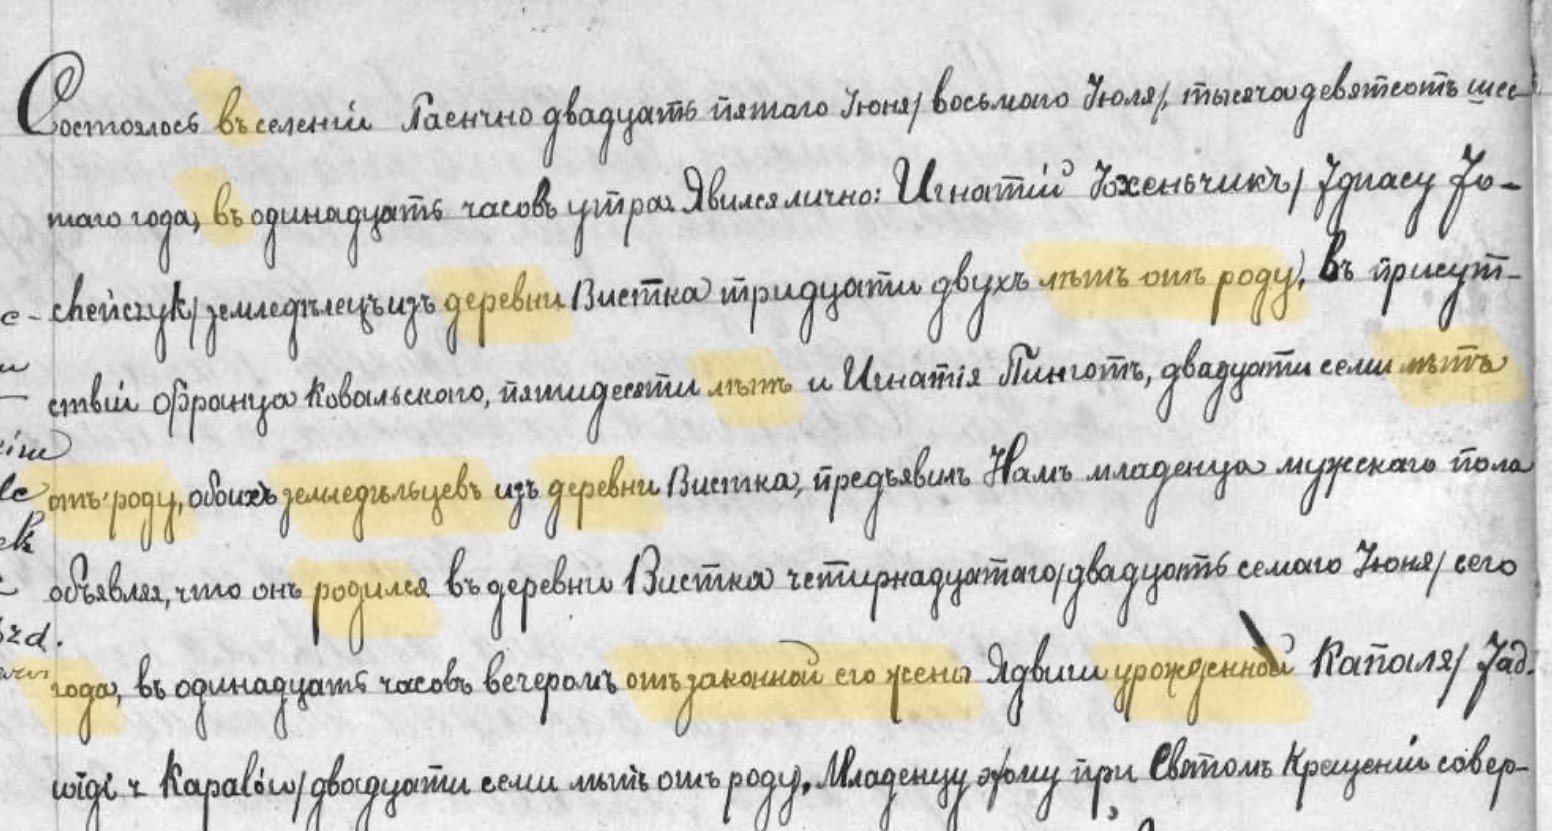 Состоялось въ селеніи Паенчно двадцать пятаго Іюня/восьмого Іюля/, тысяча девятсотъ шес-
таго года, въ одинадцать часовъ утра. Явился лично: Игнатій Іохеньчикъ/Ignacy Jo-
с- cheńczyk/земледѣлецъ изъ деревни Вистка тридцати двухъ лѣтъ отъ роду, въ присут-
ствіи Франца Ковальского, пятидесяти лѣтъ и Игнатія Пинготъ, двадцати семи лѣтъ
отъ роду, обоихъ земледѣльцевъ изъ деревни Вистка, предъявилъ Намъ младенца мужескаго пола
объявляя, что онъ родился въ деревни Вистка четирнадцатаго/двадцать семаго Іюня/сего
года, въ одинадцать часовъ вечеромъ отъ законной его жены Ядвиги урожденной Капаля/Jad.
wigi z Kapalów/двадцати семи лѣтъ отъ роду. Младенцу этому при Святомъ Крещеніи совер-